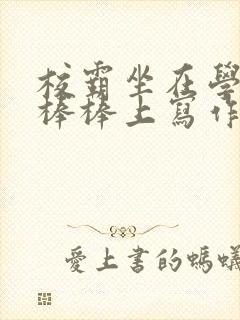 校霸坐在學
棒棒上寫作
愛上書的螞蟻